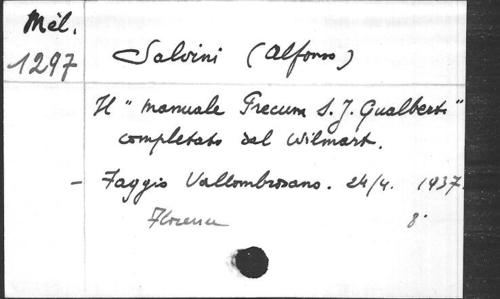 Mél.
1297
Salvini (Alfonso)
Il "manuale Precum S. J. Gualberti"
completato dal Wilmart.
- Faggio Vallombrosano. 24/4. 1937.
Florence 8°